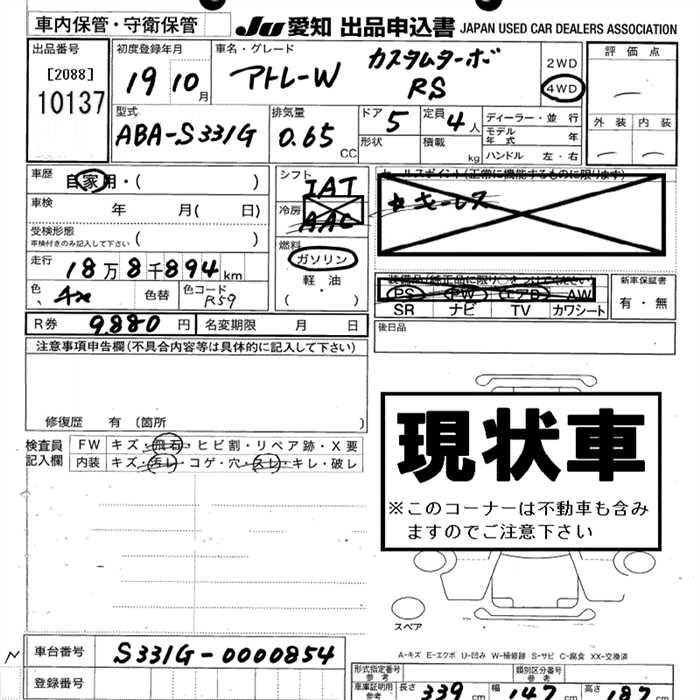 車内保管・守衛保管 JU 愛知 出品申込書 JAPAN USED CAR DEALERS ASSOCIATION
出品番号 初度登録年月 車名・グレード 評価点
[2088] 10137 19 10月 アトレーW カスタムターボ RS 2WD 4WD
型式 排気量 ドア 定員 ディーラー・並行 外装 内装
ABA-S331G 0.65 CC 5 4人 モデル年式 年
形状 積載 kg ハンドル 左・右
車歴 自家用・( ) シフト IAT セールスポイント(正常に機能するものに限ります)
車検 年 月( 日) 冷房 AAC キーレス
受検形態 車検付きのみ記入して下さい ( ) 燃料 ガソリン
走行 18万8千894km 軽・油
色 色替 色コード R59 ( ・ )
装備品(純正品に限り○をつけてください) 新車保証書
PS PW エアB AW 有・無
SR ナビ TV カワシート
R券 9,880円 名変期限 月 日 後日品
注意事項申告欄(不具合内容等は具体的に記入して下さい)
修復歴 有 〔箇所 〕
検査員記入欄 FW キズ・飛石・ヒビ割・リペア跡・X要
内装 キズ・汚レ・コゲ・穴・スレ・キレ・破レ
現状車
※このコーナーは不動車も含み
ますのでご注意下さい
スペア
A-キズ E-エクボ U-凹み W-補修跡 S-サビ C-腐食 XX-交換済
車台番号 S331G-0000854 形式指定番号 参考 類別区分番号 参考
登録番号 車庫証明用 参考 長さ 339 cm 幅 147 cm 高さ 187 cm